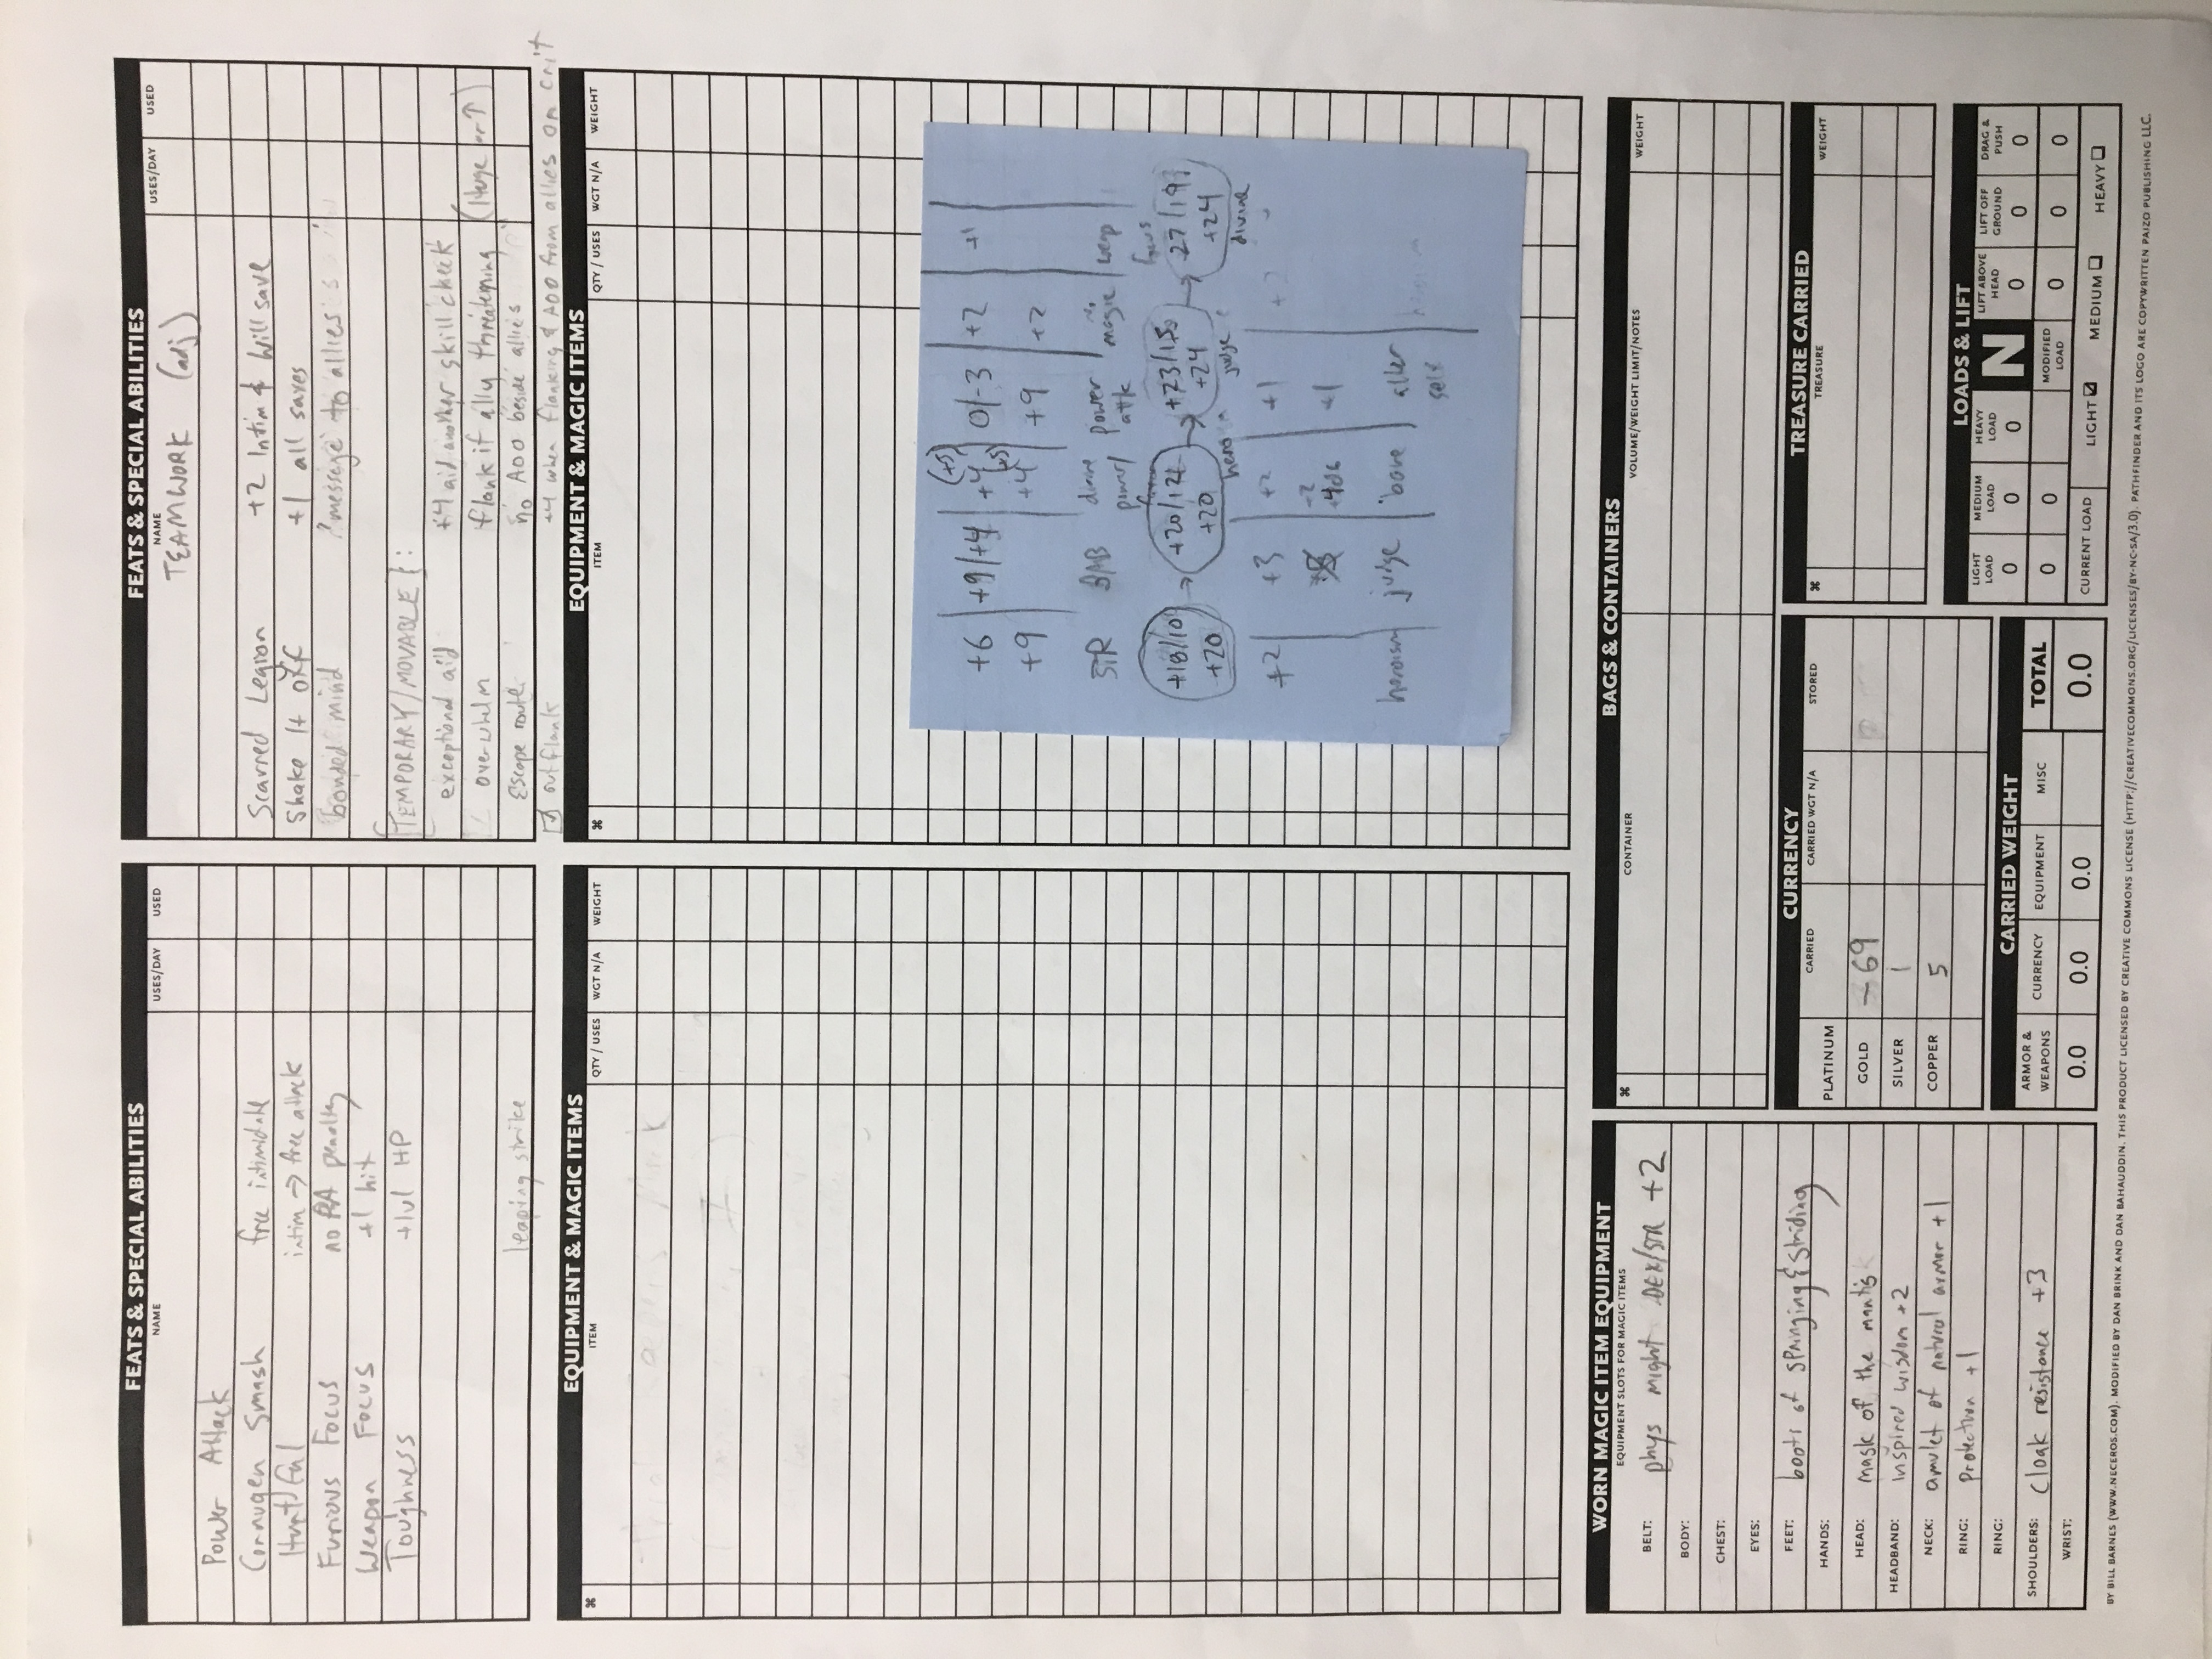 FEATS & SPECIAL ABILITIES
NAME USES/DAY USED
Power Attack
Cornugen Smash free intimidate
Hurtful intim → free attack
Furious Focus no PA penalty
Weapon Focus +1 hit
Toughness +1lvl HP
leaping strike
FEATS & SPECIAL ABILITIES
NAME USES/DAY USED
TEAMWORK (adj)
Scarred Legion +2 Intim & Will save
Shake It off +1 all saves
bonded mind message to allies
TEMPORARY/MOVABLE :
exceptional aid +4 aid another skill check
overwhelm flank if ally threatening (Huge or ↑)
Escape route no AOO beside allies
☑ outflank +4 when flanking & AOO from allies on crit
EQUIPMENT & MAGIC ITEMS
⌘ ITEM QTY / USES WGT N/A WEIGHT
EQUIPMENT & MAGIC ITEMS
⌘ ITEM QTY / USES WGT N/A WEIGHT
(+5)
+6 +9/+4 +4 0/-3 +2 +1
(+5)
+9 +4 +9 +2
STR BAB divine power/ favor power attk magic weap focus
+18/10 → +20/12 → +23/15 → 27/19
+20 +20 +24 +24
judge divine
+2 +3 +2 +1
+1
heroism judge bane alter self
WORN MAGIC ITEM EQUIPMENT
EQUIPMENT SLOTS FOR MAGIC ITEMS
BELT: phys might DEX/STR +2
BODY:
CHEST:
EYES:
FEET: boots of springing & striding
HANDS:
HEAD: mask of the mantis
HEADBAND: inspired wisdom +2
NECK: amulet of natural armor +1
RING: protection +1
RING:
SHOULDERS: cloak resistance +3
WRIST:
BAGS & CONTAINERS
⌘ CONTAINER VOLUME/WEIGHT LIMIT/NOTES WEIGHT
CURRENCY
CARRIED CARRIED WGT N/A STORED
PLATINUM
GOLD -69
SILVER 1
COPPER 5
TREASURE CARRIED
⌘ TREASURE WEIGHT
CARRIED WEIGHT
ARMOR & WEAPONS CURRENCY EQUIPMENT MISC TOTAL
0.0 0.0 0.0 0.0
LOADS & LIFT
LIGHT LOAD MEDIUM LOAD HEAVY LOAD N LIFT ABOVE HEAD LIFT OFF GROUND DRAG & PUSH
0 0 0 0 0 0
0 0 MODIFIED LOAD 0 0 0
CURRENT LOAD LIGHT ☑ MEDIUM ☐ HEAVY ☐
BY BILL BARNES (WWW.NECEROS.COM). MODIFIED BY DAN BRINK AND DAN BAHAUDDIN. THIS PRODUCT LICENSED BY CREATIVE COMMONS LICENSE (HTTP://CREATIVECOMMONS.ORG/LICENSES/BY-NC-SA/3.0). PATHFINDER AND ITS LOGO ARE COPYWRITTEN PAIZO PUBLISHING LLC.